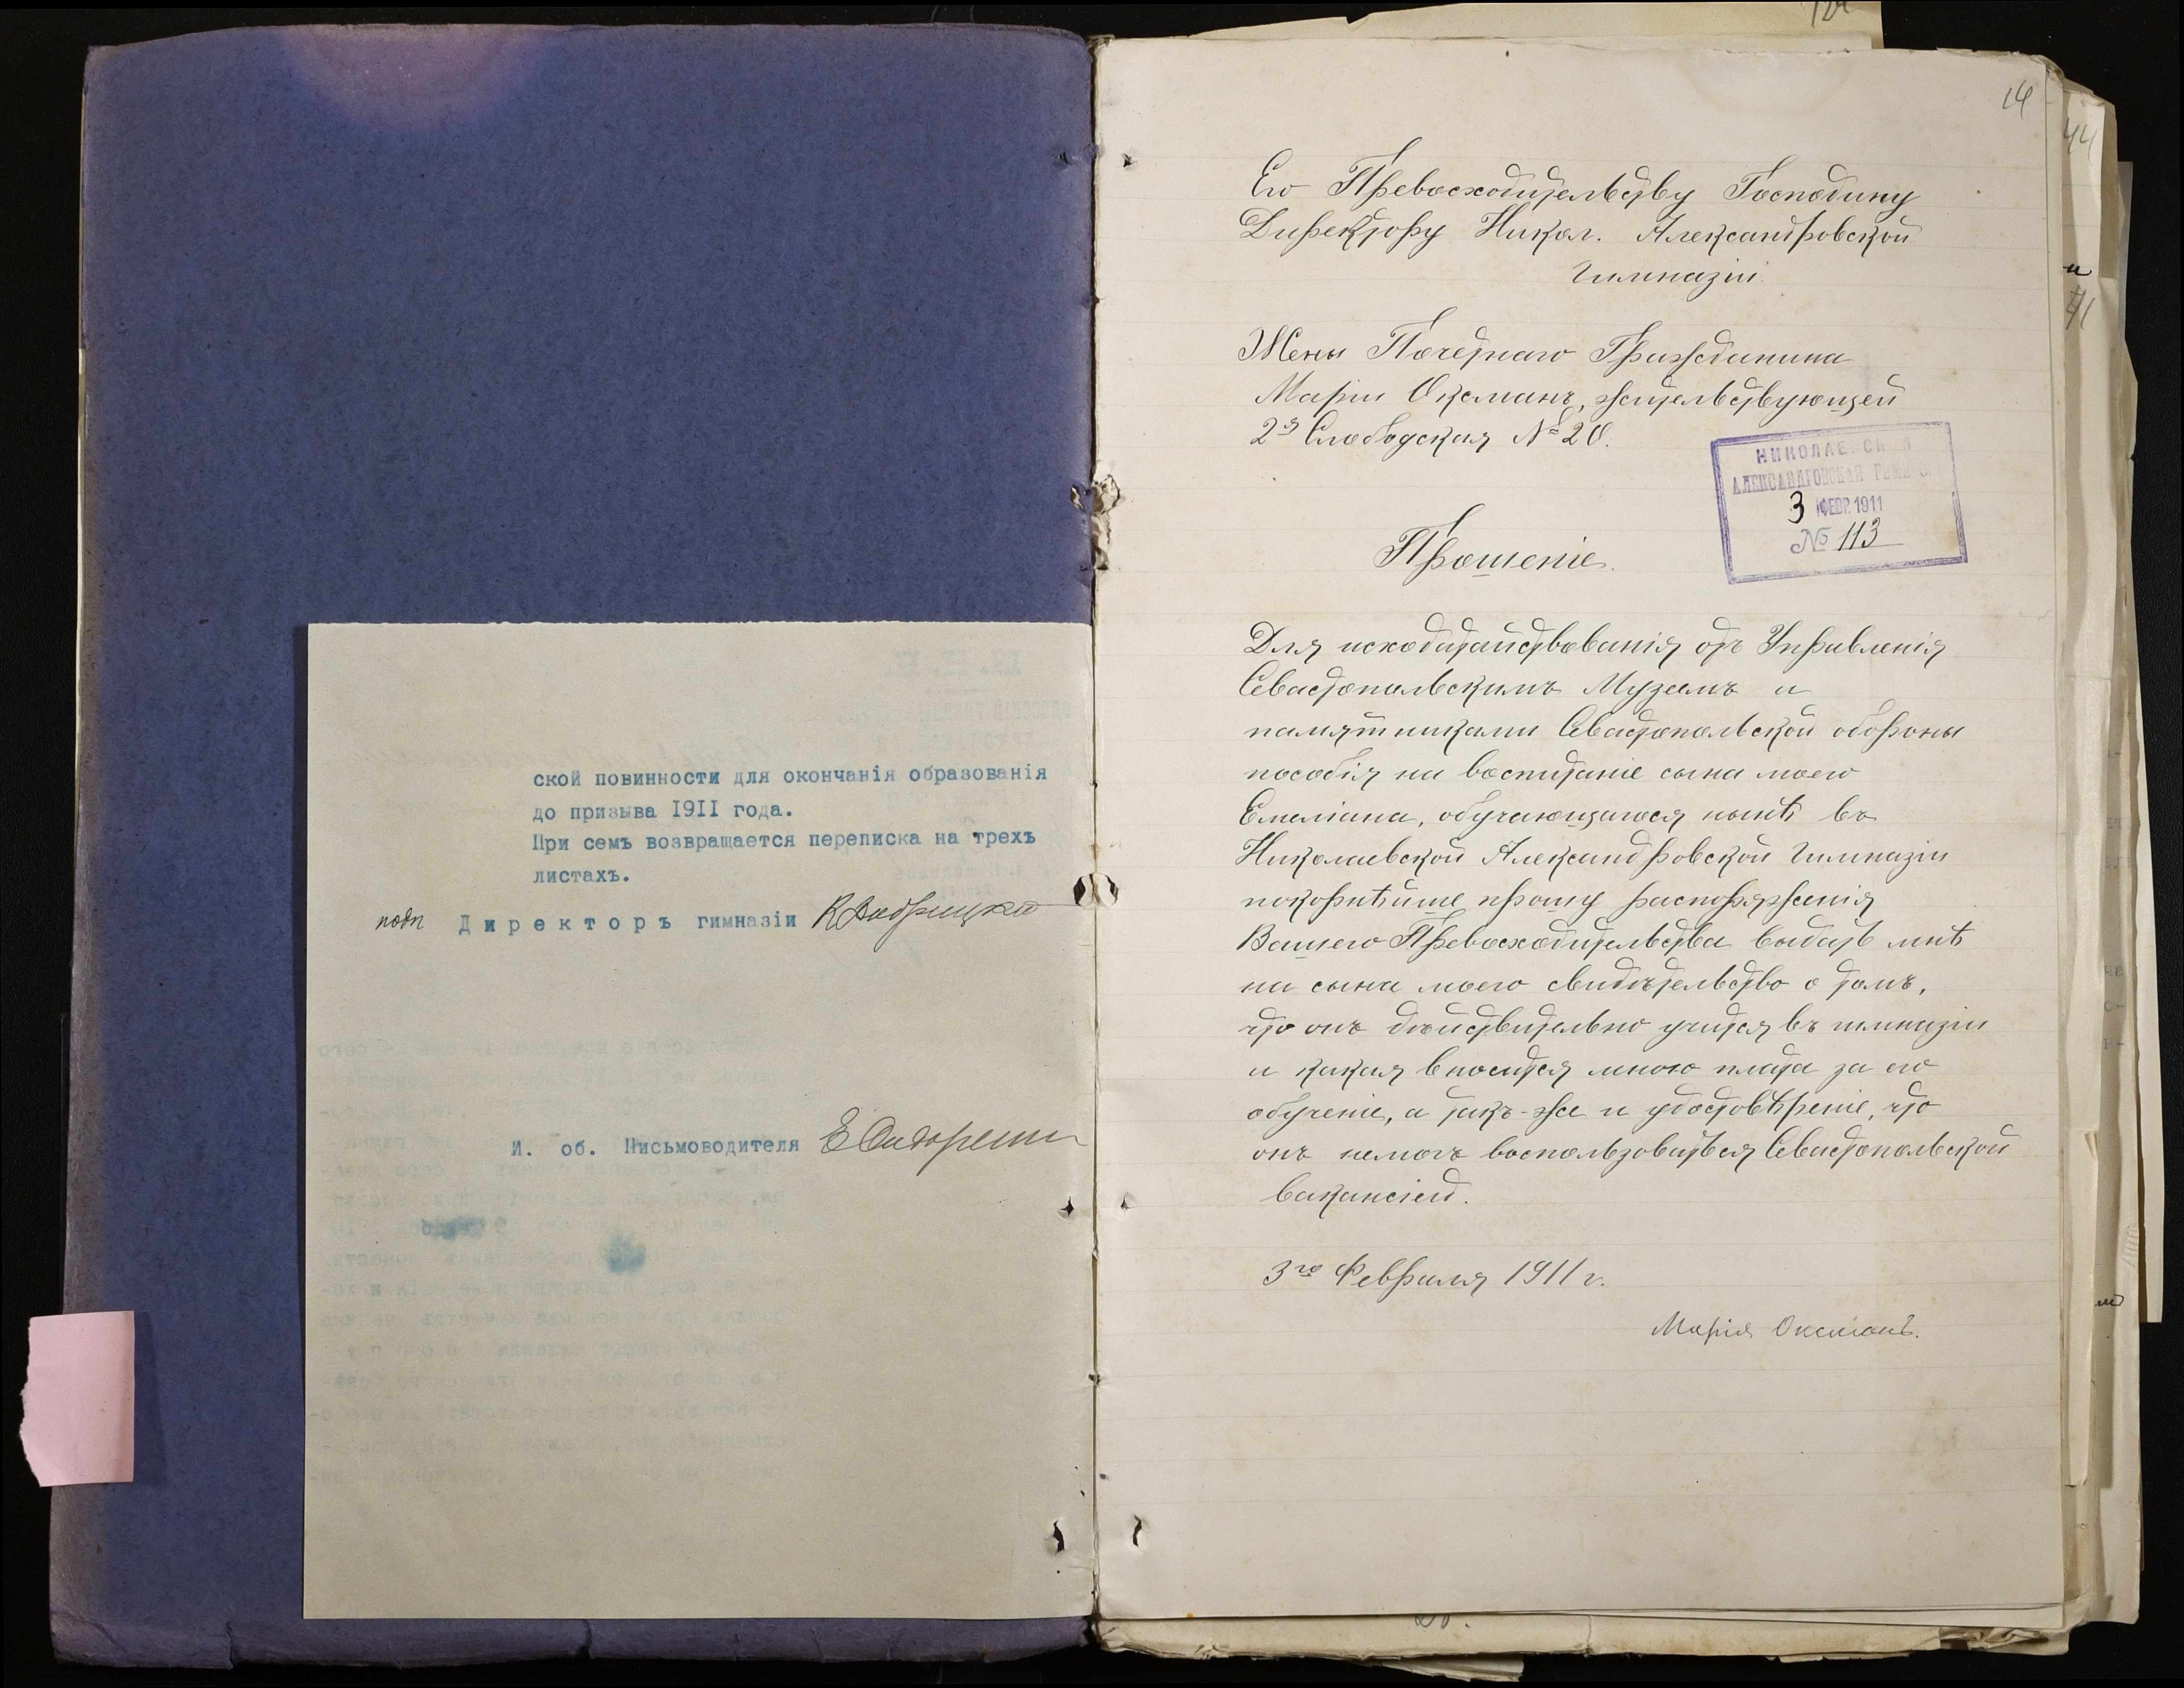 ской повинности для окончанія образованія
до призыва 1911 года.
При семъ возвращается переписка на трехъ
листахъ.
подп Директоръ гимназіи
И. об. Письмоводителя
14
Его Превосходительству Господину
Директору Никол. Александровской
Гимназіи.
Жены Почетнаго Гражданина
Маріи Оксманъ, жительствующей
2я Слободская № 20.
НИКОЛАЕВСКАЯ
АЛЕКСАНДРОВСКАЯ
3 ФЕВР. 1911
№ 113
Прошеніе.
Для исходатайствованія отъ Управленія
Севастопольскимъ Музеемъ и
памятниками Севастопольской обороны
пособія на воспитаніе сына моего
Емеліана, обучающагося нынѣ въ
Николаевской Александровской Гимназіи
покорнѣйше прошу распоряженія
Вашего Превосходительства выдать мнѣ
на сына моего свидѣтельство о томъ,
что онъ дѣйствительно учится въ гимназіи
и какая вносится мною плата за его
обученіе, а такъ-же и удостовѣреніе, что
онъ немогъ воспользоваться Севастопольской
вакансіей.
3го Февраля 1911 г.
Марія Оксманъ.